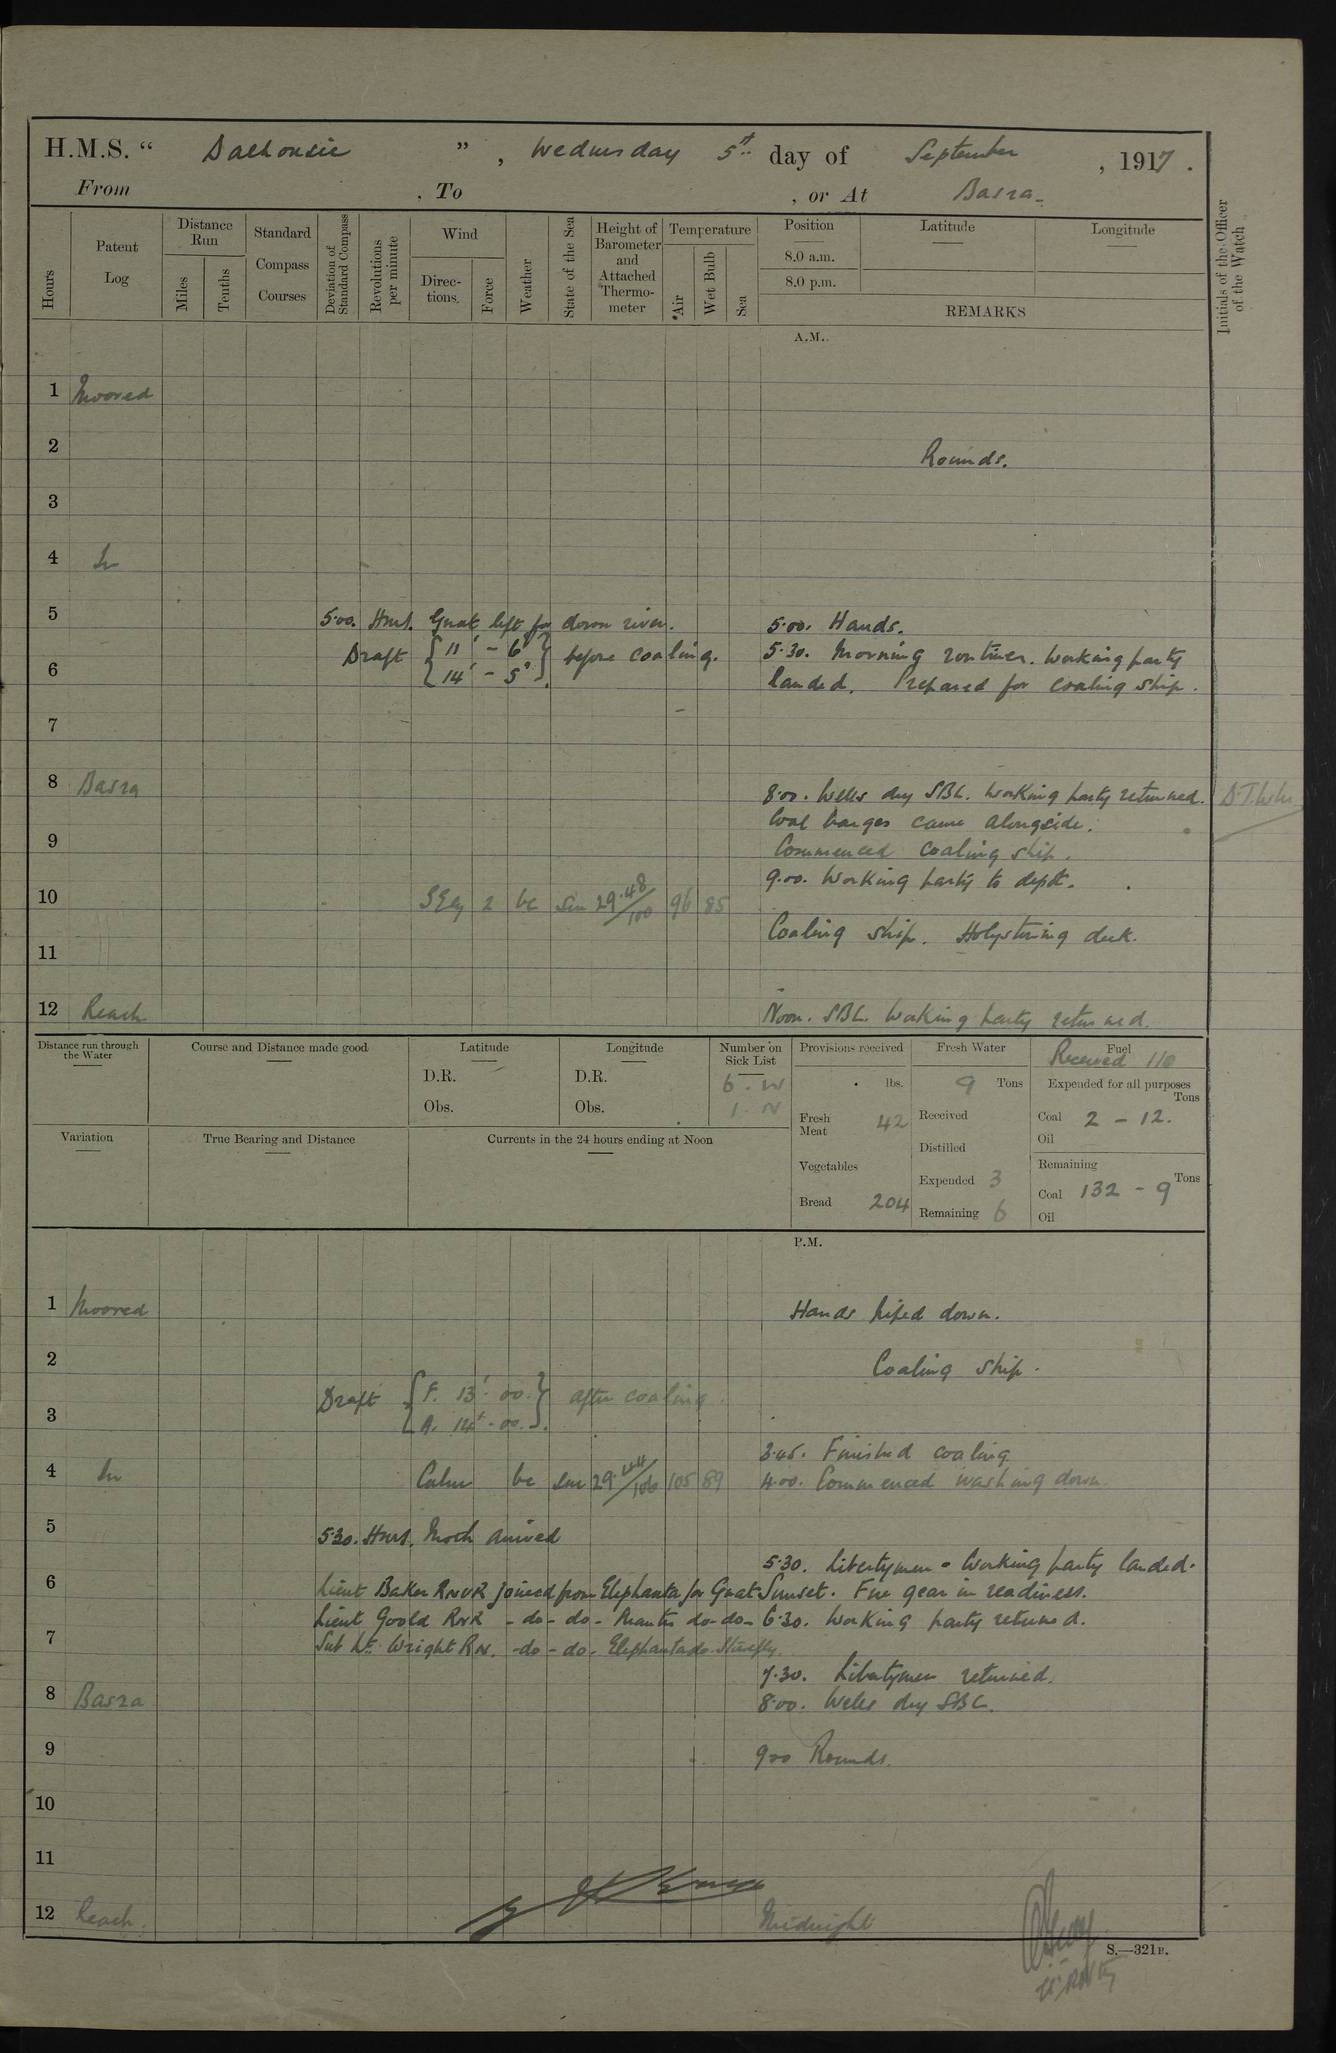 H.M.S. “ Dalhousie ” , Wednesday 5th day of September , 1917 .
From , To , or At Basra
Hours
Patent Log
Distance Run
Miles
Tenths
Standard Compass Courses
Deviation of Standard Compass
Revolutions per minute
Wind
Direc- tions.
Force
Weather
State of the Sea
Height of Barometer and Attached Thermo- meter
Temperature
Air
Wet Bulb
Sea
Position
8.0 a.m.
8.0 p.m.
Latitude
Longitude
REMARKS
Initials of the Officer of the Watch
A.M.
1 Moored
2 Rounds.
3
4 In
5 5.00. H.M.S. Gnat left for down river. 5.00. Hands.
Draft { 11' - 6" } before coaling. 5.30. Morning routines. Working party
6 { 14' - 5" } landed. Prepared for coaling ship.
7
8 Basra 8.00. Wells dry SBC. Working party returned.
Coal barges came alongside.
9 Commenced coaling ship.
9.00. Working party to depôt.
10 SEly 2 bc sm 29.48/100 96 85
Coaling ship. Holystoning deck.
11
12 Reach Noon. SBC. Working party returned.
Distance run through the Water
Course and Distance made good
Latitude
D.R.
Obs.
Longitude
D.R.
Obs.
Number on Sick List
6. W
1. N
Provisions received
lbs.
Fresh Meat 42
Vegetables
Bread 204
Fresh Water
9 Tons
Received
Distilled
Expended 3
Remaining 6
Fuel
Received 110
Expended for all purposes
Tons
Coal 2 - 12.
Oil
Remaining
Tons
Coal 132 - 9
Oil
Variation
True Bearing and Distance
Currents in the 24 hours ending at Noon
P.M.
1 Moored Hands piped down.
2 Coaling ship.
Draft { F. 13' - 00. } after coaling
3 { A. 14' - 00. }
3.45. Finished coaling
4 In Calm bc sm 29.44/100 105 89 4.00. Commenced washing down
5 5.20. H.M.S. Moth arrived
5.30. Libertymen - Working party landed.
6 Lieut Baker RNVR joined from Elephanta for Gnat Sunset. Fire gear in readiness.
Lieut Goold RNR -do- do- Mantis do- do- 6.30. Working party returned.
7 Sub Lt. Wright RN. -do- do- Elephanta do
7.30. Libertymen returned.
8 Basra 8.00. Wells dry SBC.
9 9.00 Rounds.
10
11
12 Reach. Midnight
S.—321B.